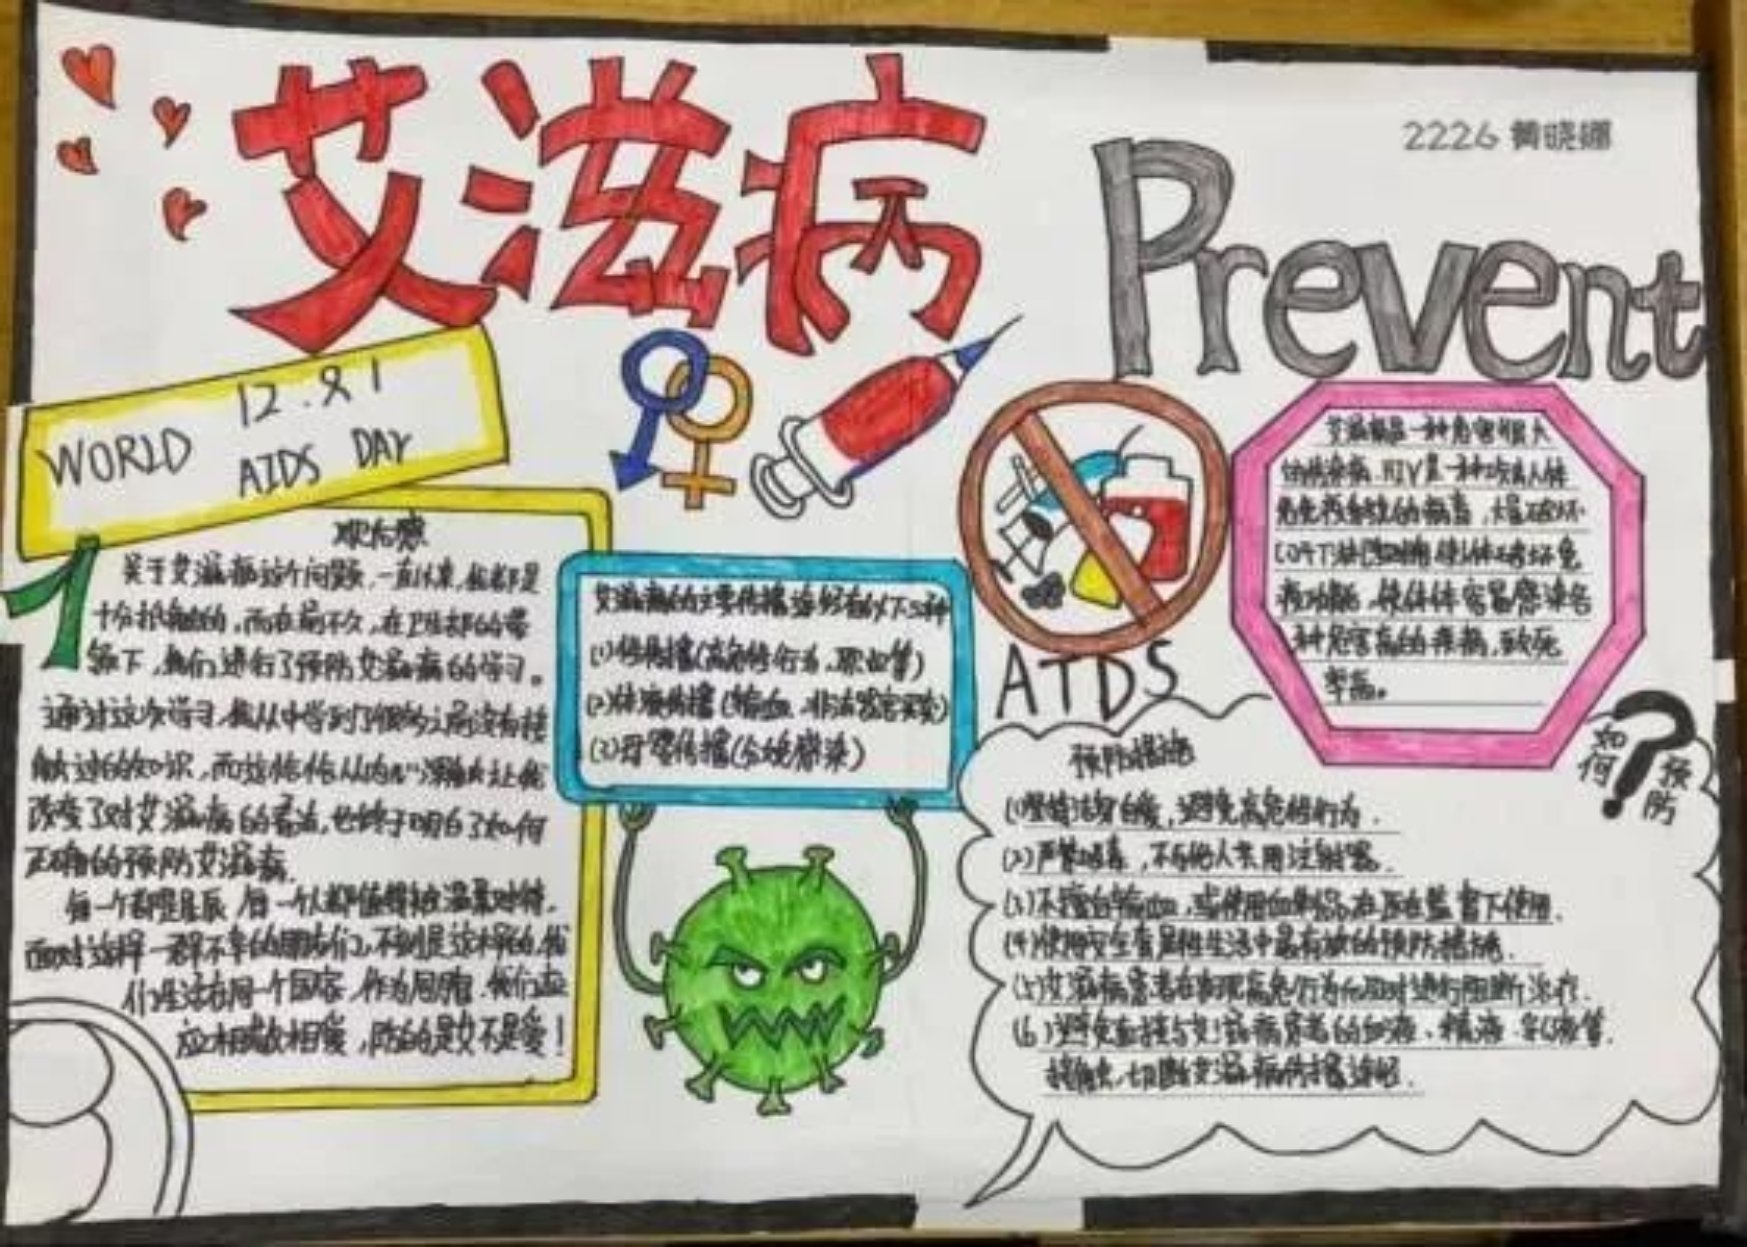 艾滋病
2226 黄晓娜
Prevent
12.月1
WORLD AIDS DAY
观后感
关于艾滋病这个问题,一直以来,我都是
十分抵触的,而在前不久,在卫生部的带
领下,我们进行了预防艾滋病的学习。
通过这次学习,我从中学到了很多之前没有接
触过的知识,而这
改变了对艾滋病的看法,也终于明白了如何
正确的预防艾滋病.
每一个都是星辰,每一个人都值得被温柔对待.
面对这样一群不幸的朋友们,不到是这样的,我
们生活在同一个国家,作为同胞,我们应
应相敬相爱,防的是艾不是爱!
艾滋病的主要传播途径有以下3种
(1)性传播(高危性行为,
(2)体液传播(输血、非法器官买卖)
(3)母婴传播(分娩感染)
AIDS
艾滋病是一种危害性极大
的传染病,HIV是一种攻击人体
免疫系统的病毒,大量破坏
CD4T淋巴细胞使人体破坏免
疫功能,使人体容易感染各
种危害高的疾病,致死
率高。
如何预防?
预防措施
(1)坚持洁身自爱,避免高危性行为.
(2)严禁吸毒,不与他人共用注射器.
(3)不擅自输血,或使用血制品,在医生监督下使用.
(4)使用安全套是性生活中最有效的预防措施.
(5)艾滋病患者在出现高危行为后及时进行阻断治疗.
(6)避免直接与艾滋病患者的血液、精液、乳液等.
接触,切断艾滋病传播途径.